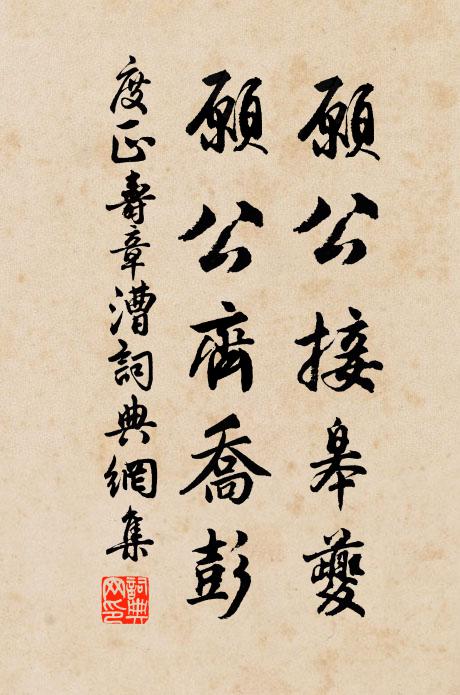 願公接皋夔
願公齊喬彭
度正壽章漕詞典網集
詞典網印